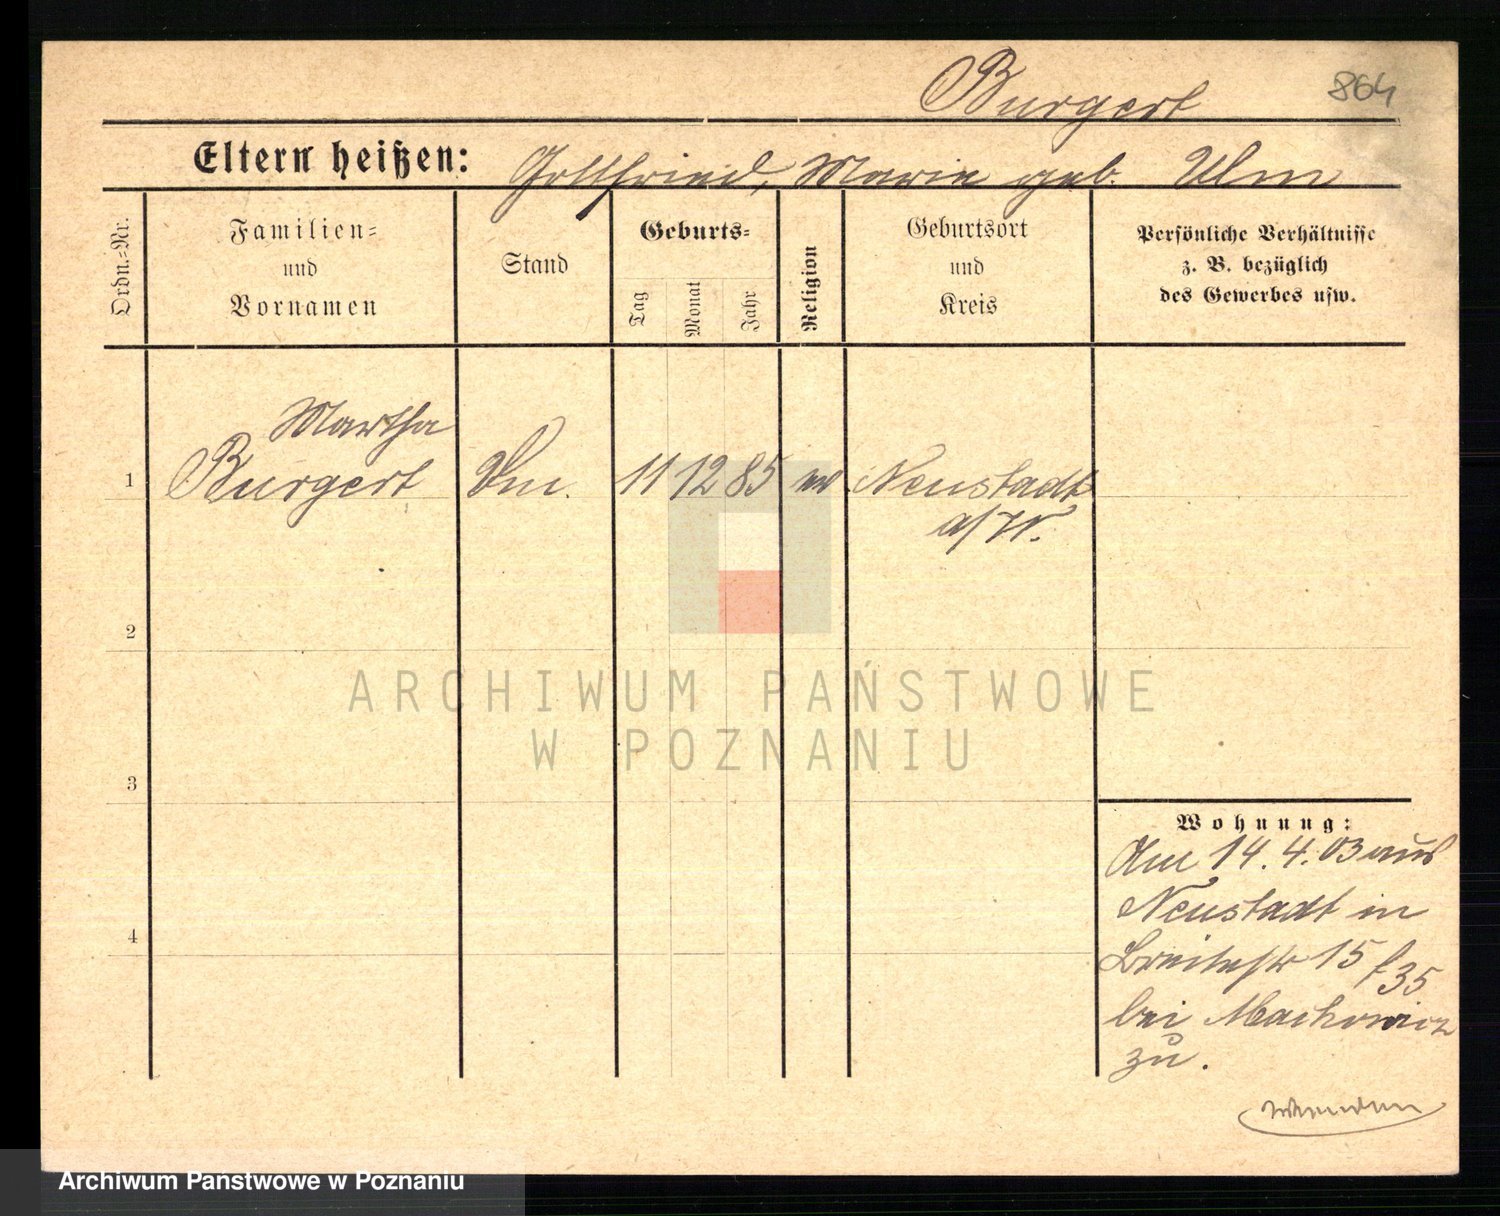 Burgert 864
Eltern heißen: Gottfried, Marie geb. Ulm
Ordn.-Nr.
Familien-
und
Vornamen
Stand
Geburts-
Tag
Monat
Jahr
Religion
Geburtsort
und
Kreis
Persönliche Verhältnisse
z. B. bezüglich
des Gewerbes usw.
Martha
1 Burgert 11 12 85 Neustadt
a/W.
2
3
4
Wohnung:
Am 14. 4. 03 aus
Neustadt in
Breitestr 15
bei Mackowicz
zu.
wenden
ARCHIWUM PAŃSTWOWE
W POZNANIU
Archiwum Państwowe w Poznaniu